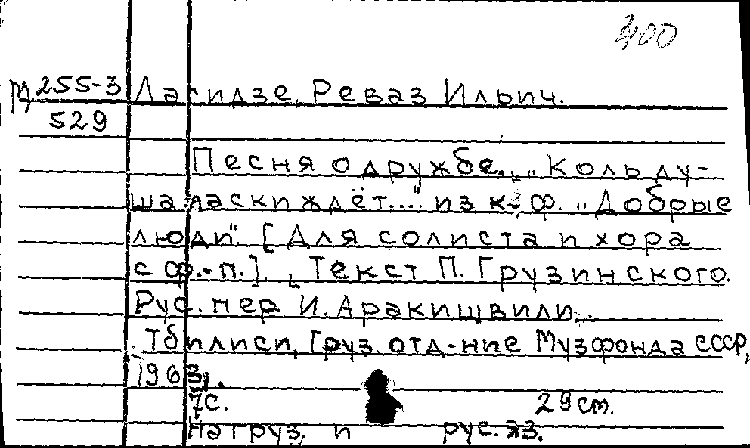 300
М 255-3 Лагидзе, Реваз Ильич.
529
Песня о дружбе. „Коль ду-
ша ласки ждёт..." из к-ф. „Добрые
люди". [Для солиста и хора
с ф.-п.]. Текст П. Грузинского.
Рус. пер. И. Аракишвили.
Тбилиси, Груз. отд-ние Музфонда СССР,
1963.
7с. 29 см.
На груз. и рус. яз.